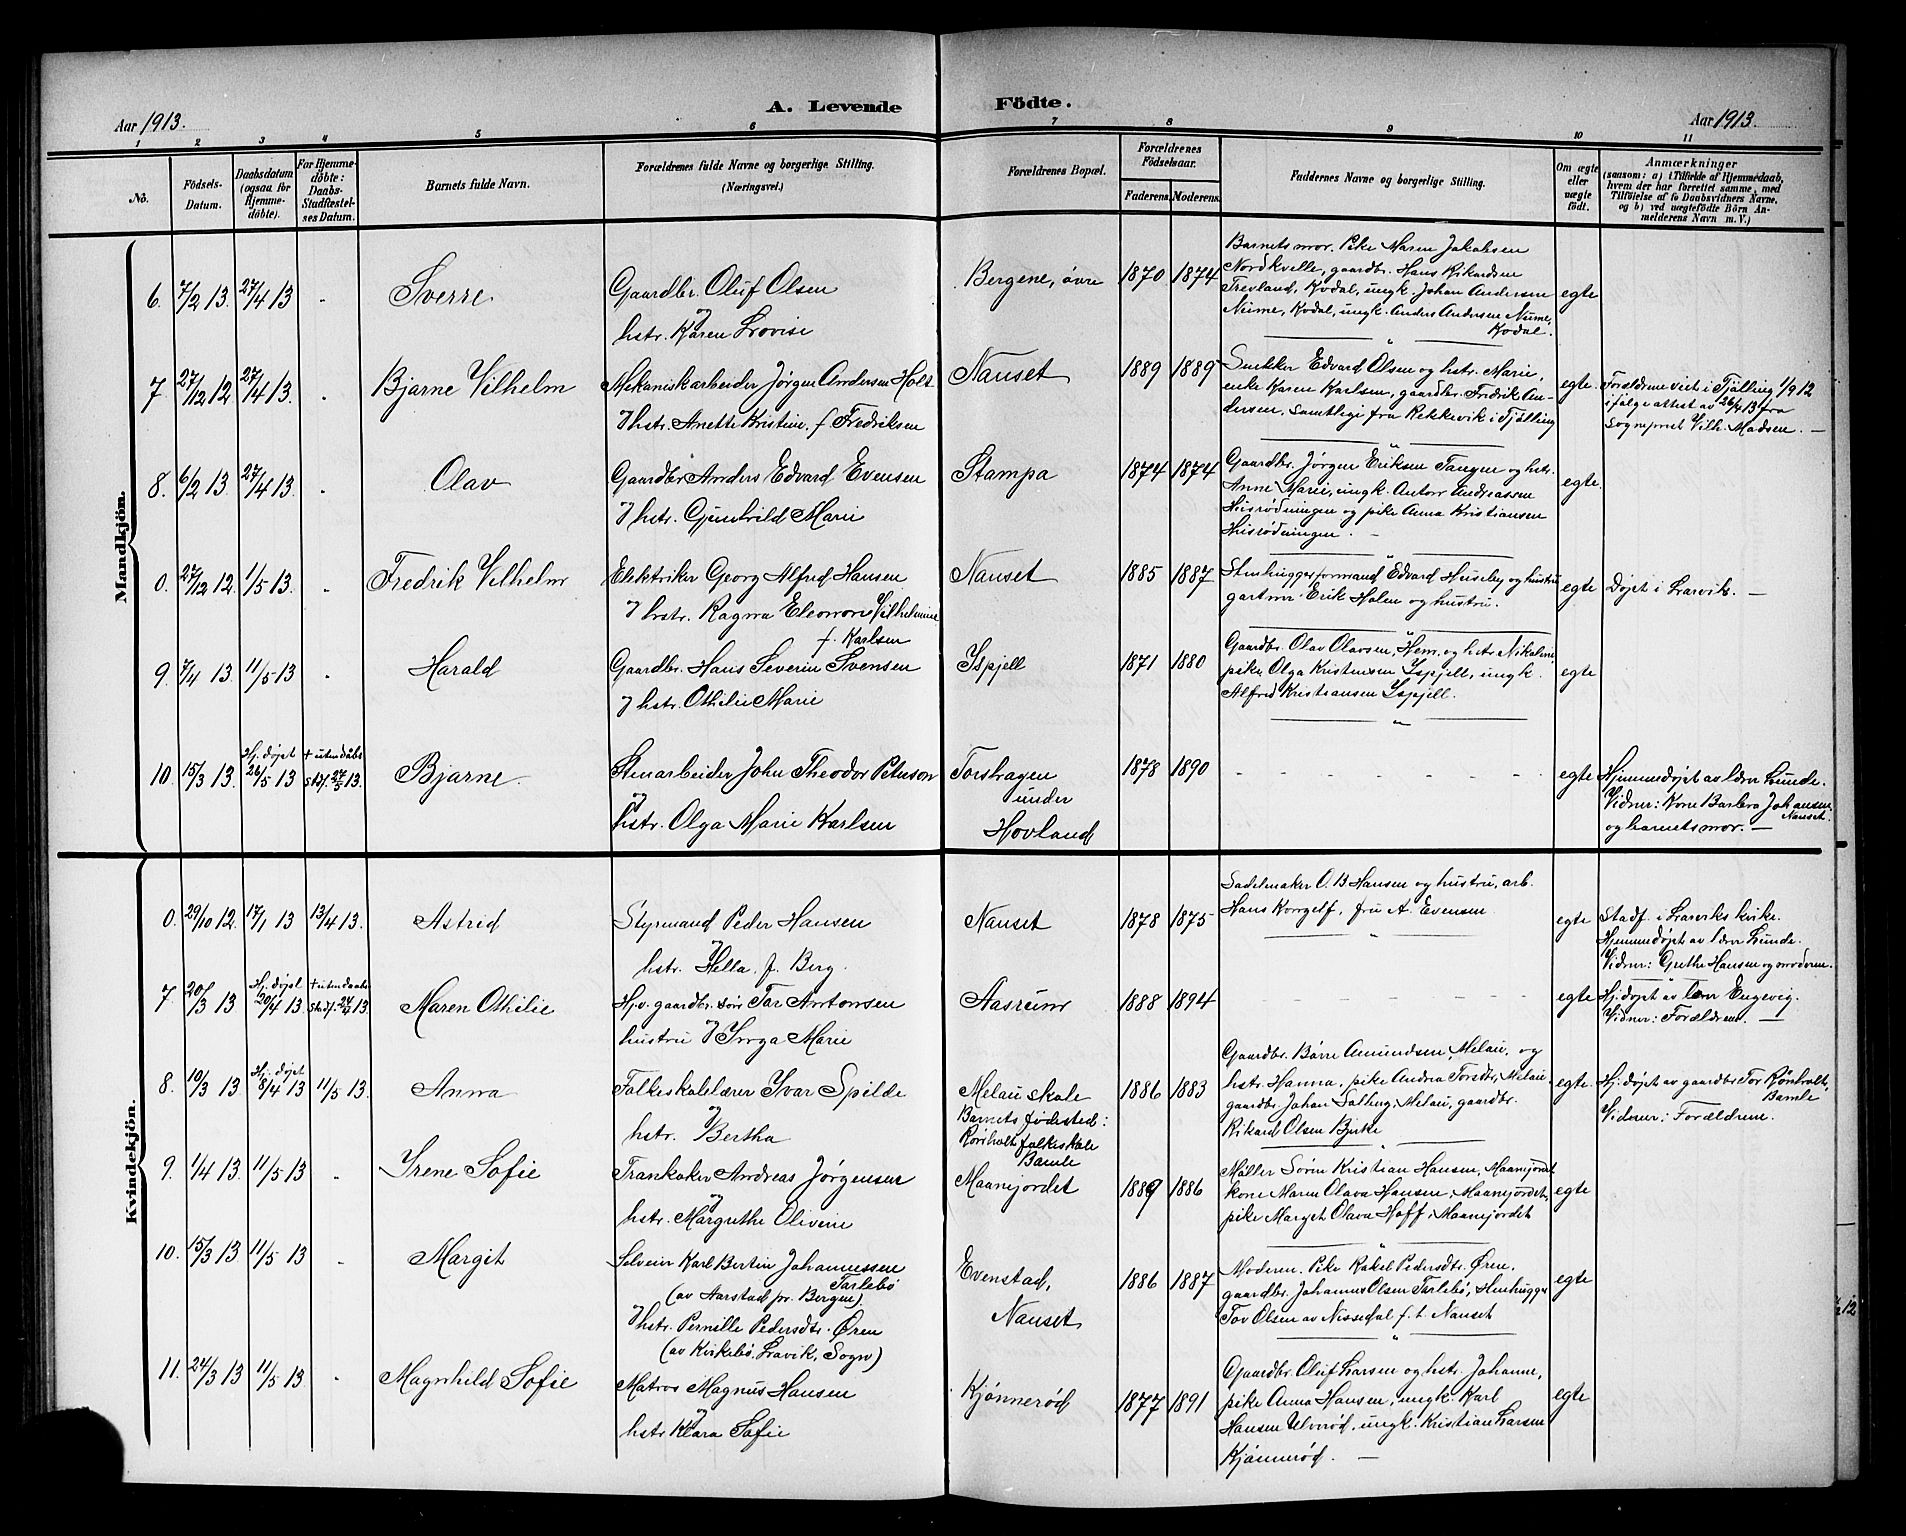 A. Levende Födte.
Aar 1913.
Aar 1913.
1 2 3 4 5 6 7 8 9 10 11
No.
Födsels-Datum.
Daabsdatum (ogsaa for Hjemmedöbte).
For Hjemmedöbte: Daabs-Stadfæstelses Datum.
Barnets fulde Navn.
Forældrenes fulde Navne og borgerlige Stilling. (Næringsvei.)
Forældrenes Bopæl.
Forældrenes Födselsaar.
Faderens. Moderens.
Faddernes Navne og borgerlige Stilling.
Om ægte eller uægte födt.
Anmærkninger
(saasom: a) i Tilfælde af Hjemmedaab, hvem der har forrettet samme, med Tilföielse af to Daabsvidners Navne, og b) ved uægtefödte Börn Anmelderens Navn m. V.)
Mandkjön.
6. 7/2 13. 27/4 13 - Sverre
Gaardbr. Oluf Olsen
og
hstr. Karen Lovise
Bergene, øvre 1870 1874
Barnets mor. Pike Maren Jakobsen
Nordkvelle, gaardbr. Hans Rikardsen
Trevland, Kodal, ungk. Johan Andersen
Nume, Kodal, ungk. Anders Andersen Nume,
Kodal.
egte
7 27/12 12 27/4 13. - Bjarne Vilhelm
Mekaniskarbeider Jørgen Andersen Holt
og hstr. Anette Kristine f. Fredriksen
Nanset 1889 1889
Snekker Edvard Olsen og hstr. Marie,
enke Karen Karlsen, gaardbr. Fredrik An-
dersen, samtlige fra Rekkevik i Tjølling
egte.
Forældrene viet i Tjølling 1/9 12
ifølge attest av 26/4 13 fra
Sogneprest Vilh. Madsen. —
8. 6/2 13 27/4 13. - Olav
Gaardbr. Anders Edvard Evensen
og hstr. Gunhild Marie
Stampa 1874 1874
Gaardbr. Jørgen Eriksen Tangen og hstr.
Anne Marie, ungk. Anton Andreassen
Husrødningen og pike Anna Kristiansen
Husrødningen. —
egte.
0. 27/12 12. 1/5 13. - Fredrik Vilhelm
Elektriker Georg Alfred Hansen
og hstr. Ragna Eleonora Vilhelmine
f. Karlsen
Nanset 1885 1887
Stenhuggerformand Edvard Huseby og hustru
gartner Erik Holen og hustru.
egte
Døpt i Larvik. —
9. 7/4 13 11/5 13 - Harald
Gaardbr. Hans Severin Svensen
og hstr. Othilie Marie
Ispjell 1871 1880
Gaardbr. Olav Olavsen Hem og hstr. Nikoline,
pike Olga Kristensen Ispjell, ungk.
Alfred Kristiansen Ispjell.
egte
10. 15/3 13 Hj. døpt 26/5 13 + uten dåbs stdf. 27/5 13. Bjarne
Stenarbeider John Theodor Peterson
og
hstr. Olga Marie Karlsen
Torshagen
under
Hovland
1878 1890 - - - - - - - egte
Hjemmedøpt av lærer Lunde.
Vidner: Kone Barbra Johansen
Nanset.
og barnets mor. —
Kvindekjön.
0. 29/10 12. 17/1 13 13/4 13. Astrid
Styrmand Peder Hansen
og
hstr. Hella f. Berg.
Nanset 1878 1875
Sadelmaker O. B. Hansen og hustru, arb.
Hans Korgelf, fru A. Evensen
egte
Stadf. i Larviks kirke.
Hjemmedøpt av lærer Lunde.
Vidner: Grethe Hansen og moderen.
7. 20/3 13 Hj. døpt 20/4 13 + uten daabs stadf. 27/4 13. Maren Othilie
Hjv. gaardbr. søn Tor Antonsen
hustru og Inga Marie
Aasrum 1888 1894 - - - - - - egte
Hj. døpt av lærer Engevig.
Vidner: Forældrene. —
8. 10/3 13 Hj. døpt 8/4 13 11/5 13. Anna
Folkeskolelærer Ivar Spilde
og
hstr. Bertha
Melau skole
Barnets fødested:
Rørholt folkeskole
Bamle
1886 1883
Gaardbr. Børre Amundsen, Melau, og
hstr. Hanna, pike Andrea Torsdtr, Melau
gaardbr. Johan Solberg, Melau, gaardbr.
Rikard Olsen Bjerke
egte
Hj. døpt av gaardbr Tor Rønholt,
Bamle
Vidner: Forældrene.
9. 1/4 13 11/5 13 - Irene Sofie
Trankoker Andreas Jørgensen
og
hstr. Margrethe Oliveie
Maanejordet 1889 1886
Møller Sørn Kristian Hansen, Maanejordet
kone Maren Olava Hansen, Maanejordet,
pike Marget Olava Hoff, Maanejordet
egte
10. 15/3 13 11/5 13 - Margit
Selveier Karl Bertin Johannessen
Tarlebø
(av Aarstad pr. Bergen).
og hstr. Pernille Pedersdtr. Øren
(av Kirkebø, Lavik, Sogn)
Evenstad,
Nanset
1886 1887
Moderen. Pike Rakel Pedersdtr. Øren.
gaardbr. Johannes Olsen Tarlebø, stenhugger
Tov Olsen av Nissedal f. t. Nanset
egte
11. 24/3 13 11/5 13 - Magnhild Sofie
Matros Magnus Hansen
og
hstr Klara Sofie
Kjønnerød 1877 1891
Gaardbr. Oluf Larsen og hstr. Johanne,
pike Anna Hansen, ungk. Karl
Hansen Ulverød, ungk. Kristian Larsen
Kjønnerød. —
egte